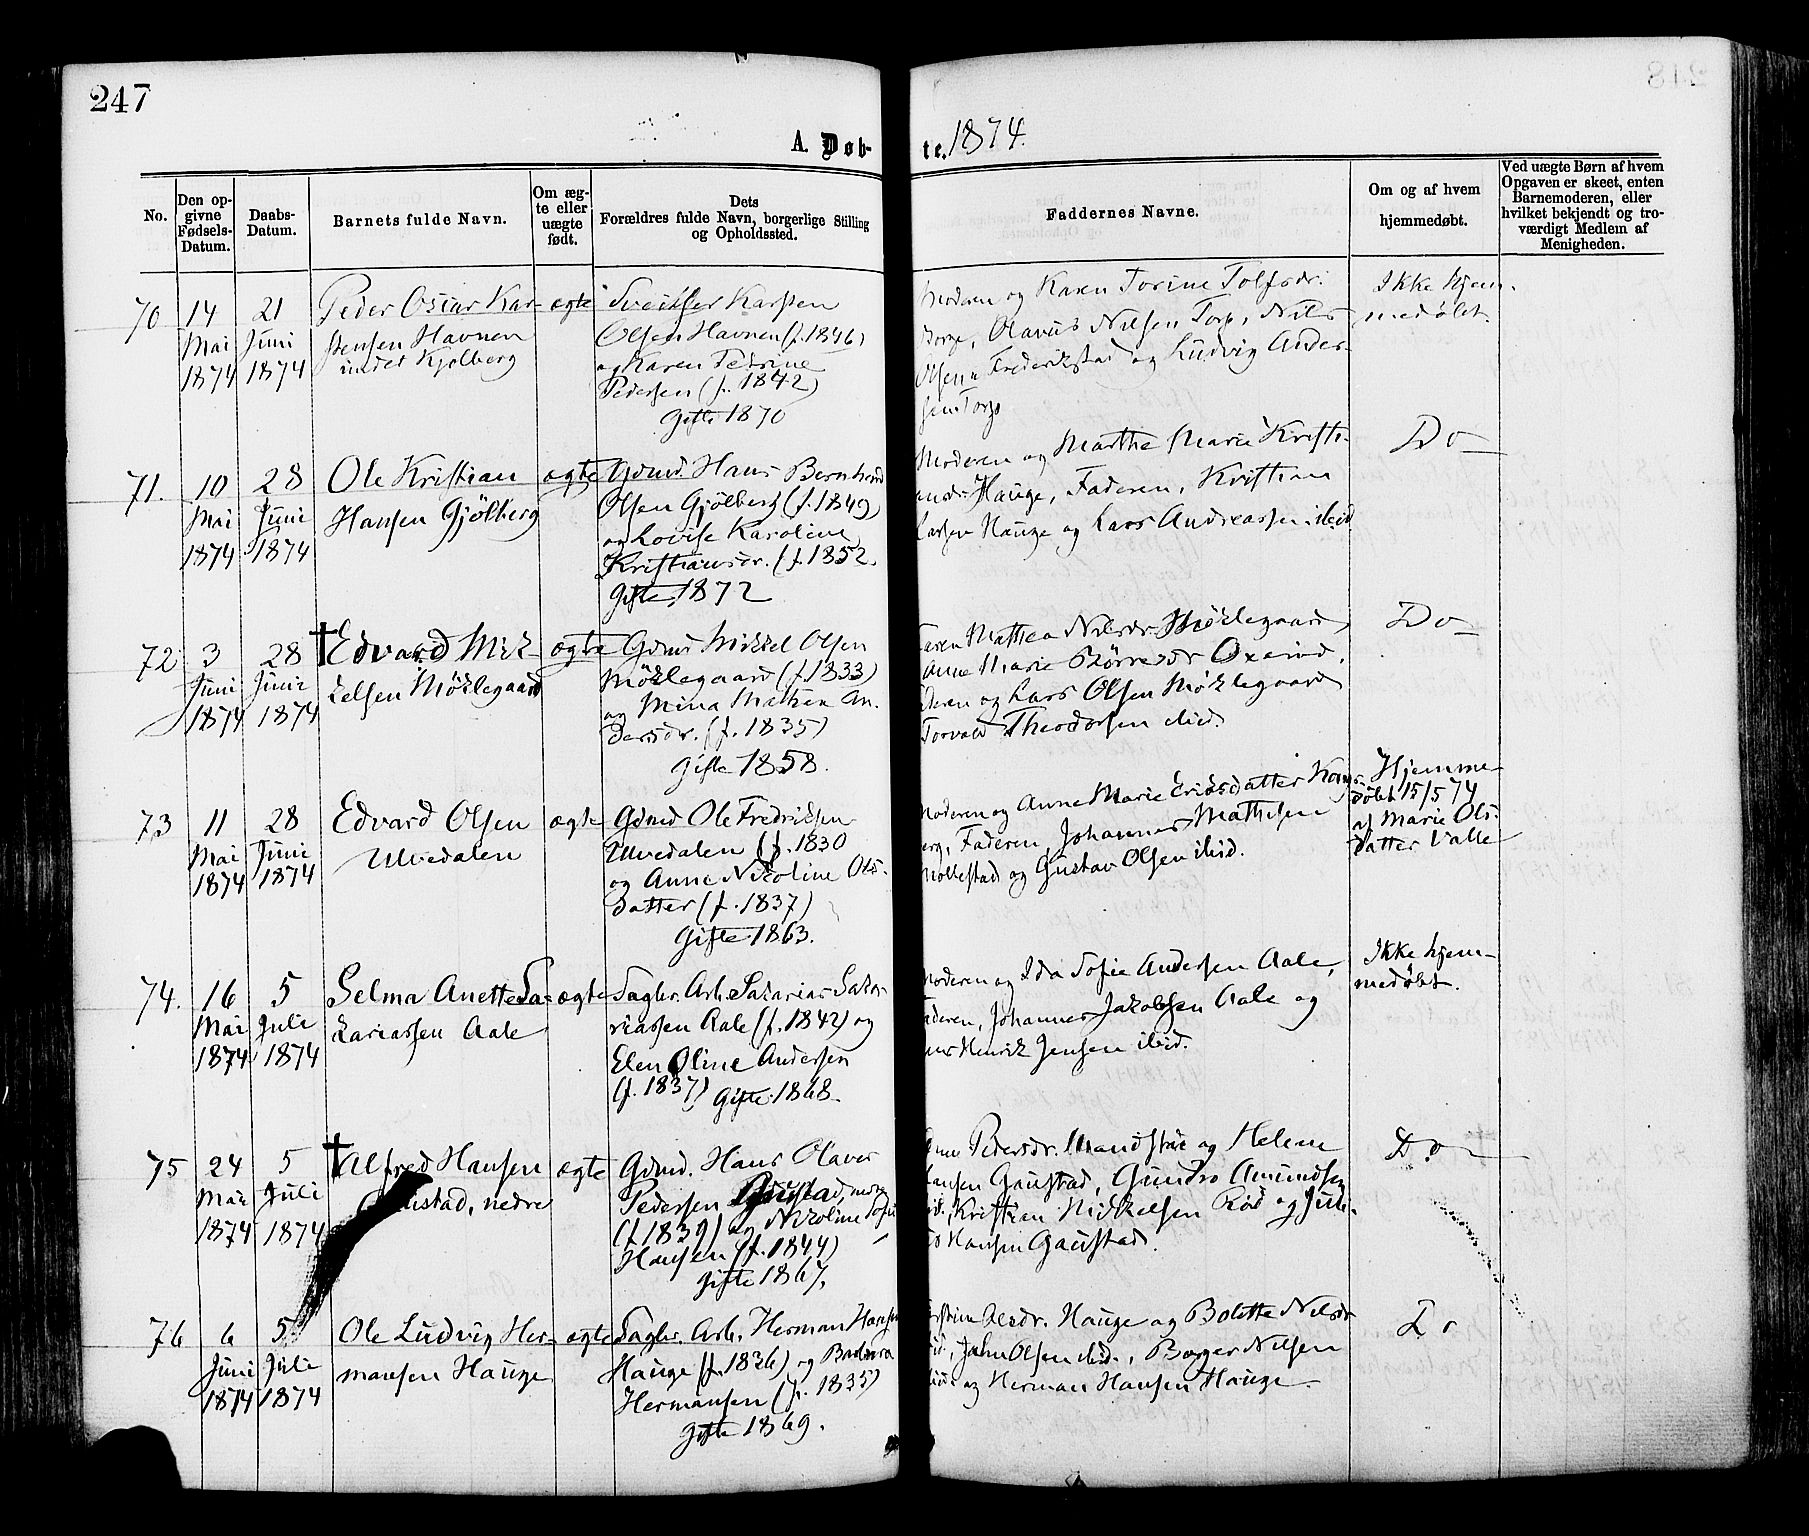 247
A. Døb-
te. 1874.
No.
Den op-
givne
Fødsels-
Datum.
Daabs-
Datum.
Barnets fulde Navn.
Om æg-
te eller
uægte
født.
Dets
Forældres fulde Navn, borgerlige Stilling
og Opholdssted.
Faddernes Navne.
Om og af hvem
hjemmedøbt.
Ved uægte Børn af hvem
Opgaven er skeet, enten
Barnemoderen, eller
hvilket bekjendt og tro-
værdigt Medlem af
Menigheden.
70
14
Mai
1874
21
Juni
1874
Peder Oscar Kar-
stensen Havnen
under Kjølberg
ægte
Karsten
Olsen Havnen (f. 1846)
og Karen Petrine
Pedersen (f. 1842)
Gifte 1870
Moderen og Karen Torine Tolfsdr.
Borge, Olavus Nilsen Torp, Nils
Olsen Frederikstad og Ludvig Ander-
sen Torp
Ikke hjem-
medøbt.
71.
10
Mai
1874
28
Juni
1874
Ole Kristian
Hansen Gjölberg
ægte
Gdmd. Hans Bernhard
Olsen Gjölberg (f. 1849)
og Lovise Karoline
Kristiansdr. (f. 1852.
Gifte 1872
Moderen og Marthe Marie Kristi-
ansdr. Hauge, Faderen, Kristian
Larsen Hauge og Lars Andreassen ibid
Do
72
3
Juni
1874
28
Juni
1874
† Edvard Mik-
kelsen Möklegaard
ægte
Gdmd Mikkel Olsen
Möklegaard (f. 1833)
og Mina Mathea An-
dersdr. (f. 1835)
Gifte 1858.
Karen Mathea Nilsdr Möklegaard
Anne Marie Börresdr Oxrød,
Faderen og Lars Olsen Möklegaard
Torvald Theodorsen ibid.
Do
73
11
Mai
1874
28
Juni
1874
Edvard Olsen
Ulvedalen
ægte
Gdmd Ole Fredriksen
Ulvedalen (f. 1830
og Anne Nikoline Ols-
datter (f. 1837)
Gifte 1863.
Moderen og Anne Marie Eriksdatter Kongs-
berg, Faderen, Johannes Mathisen
Mollestad og Gustav Olsen ibid.
Hjemme-
döbt 15/5 74
af Marie Ols-
datter Valle
74.
16
Mai
1874
5
Juli
1874
Selma Anette Sa-
kariassen Aale
ægte
Sagbr. Arb. Sakarias Saka-
riassen Aale (f. 1842) og
Elen Oline Andersen
(f. 1837) Gifte 1868.
Moderen og Ida Sofie Andersen Aale,
Faderen, Johannes Jakobsen Aale og
Henrik Jensen ibid.
Ikke hjem-
medøbt.
75
24
Mai
1874
5
Juli
1874
† Alfred Hansen
Gaustad, nedre
ægte
Gdmd. Hans Olaves
Pedersen Gaustad, nedre
(f. 1839) og Nikoline Sofie
Hansen (f. 1844)
Gifte 1867.
Pedersdr. og Helene
Hansen Gaustad, Gundro Amundsen
ibid., Kristian Mikkelsen Röd og Juli-
Hansen Gaustad.
Do
76
6
Juni
1874
5
Juli
1874
Ole Ludvig Her-
mansen Hauge
ægte
Sagbr. Arb. Herman Hansen
Hauge (f. 1836) og Barbara
Hermansen (f. 1835)
Gifte 1869.
Olesdr. Hauge og Bolette Nilsdr
ibid., John Olsen ibid., Borger Nilsen
og Herman Hansen Hauge.
Do